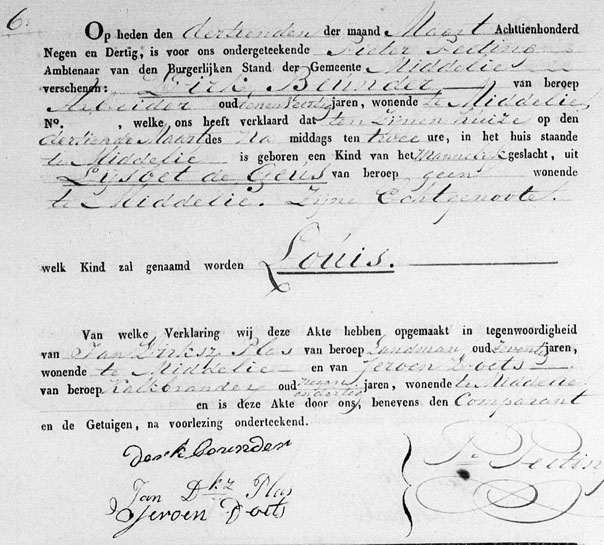 6.
Op heden den dertienden der maand Maart Achttienhonderd
Negen en Dertig, is voor ons ondergeteekende Pieter Peeting
Ambtenaar van den Burgerlijken Stand der Gemeente Middelie
verschenen: Dirk Beunder van beroep
Arbeider oud jaren, wonende te Middelie
No. , welke ons heeft verklaard dat ten zijnen huize op den
dertiende Maart des Na middags ten twee ure, in het huis staande
te Middelie is geboren een Kind van het Mannelijk geslacht, uit
Lijsbet de Geus van beroep geen wonende
te Middelie. Zijne Echtgenoote.
welk Kind zal genaamd worden Louis.
Van welke Verklaring wij deze Akte hebben opgemaakt in tegenwoordigheid
van Jan Dirksz Plas van beroep Landman oud jaren,
wonende te Middelie en van Jeroen Doets
van beroep Kalkbrander oud negen en dertig jaren, wonende te Middelie
en is deze Akte door ons, benevens den Comparant
en de Getuigen, na voorlezing onderteekend.
derk Bounder
Jan Dkz Plas
Jeroen Doets
P. Peeting